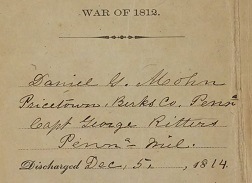 WAR OF 1812.
Daniel G. Mohn
Pricetown, Berks Co. Penna
Capt George Ritters
Penna Mil.
Discharged Dec. 5, 1814